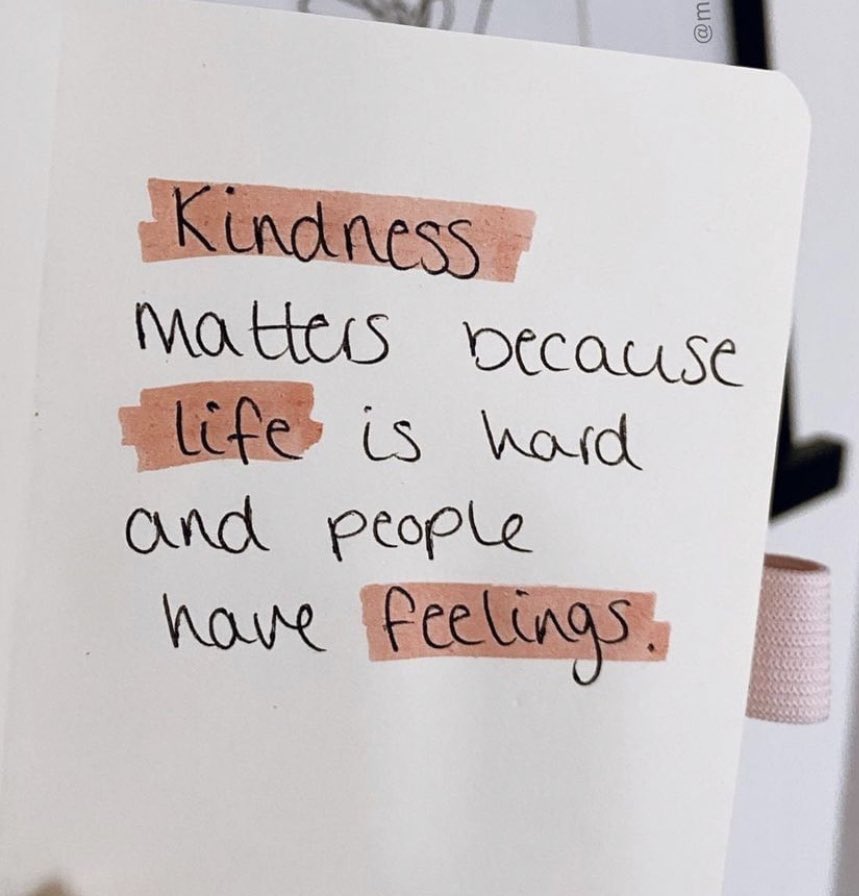 @m
Kindness
matters because
life is hard
and people
have feelings.